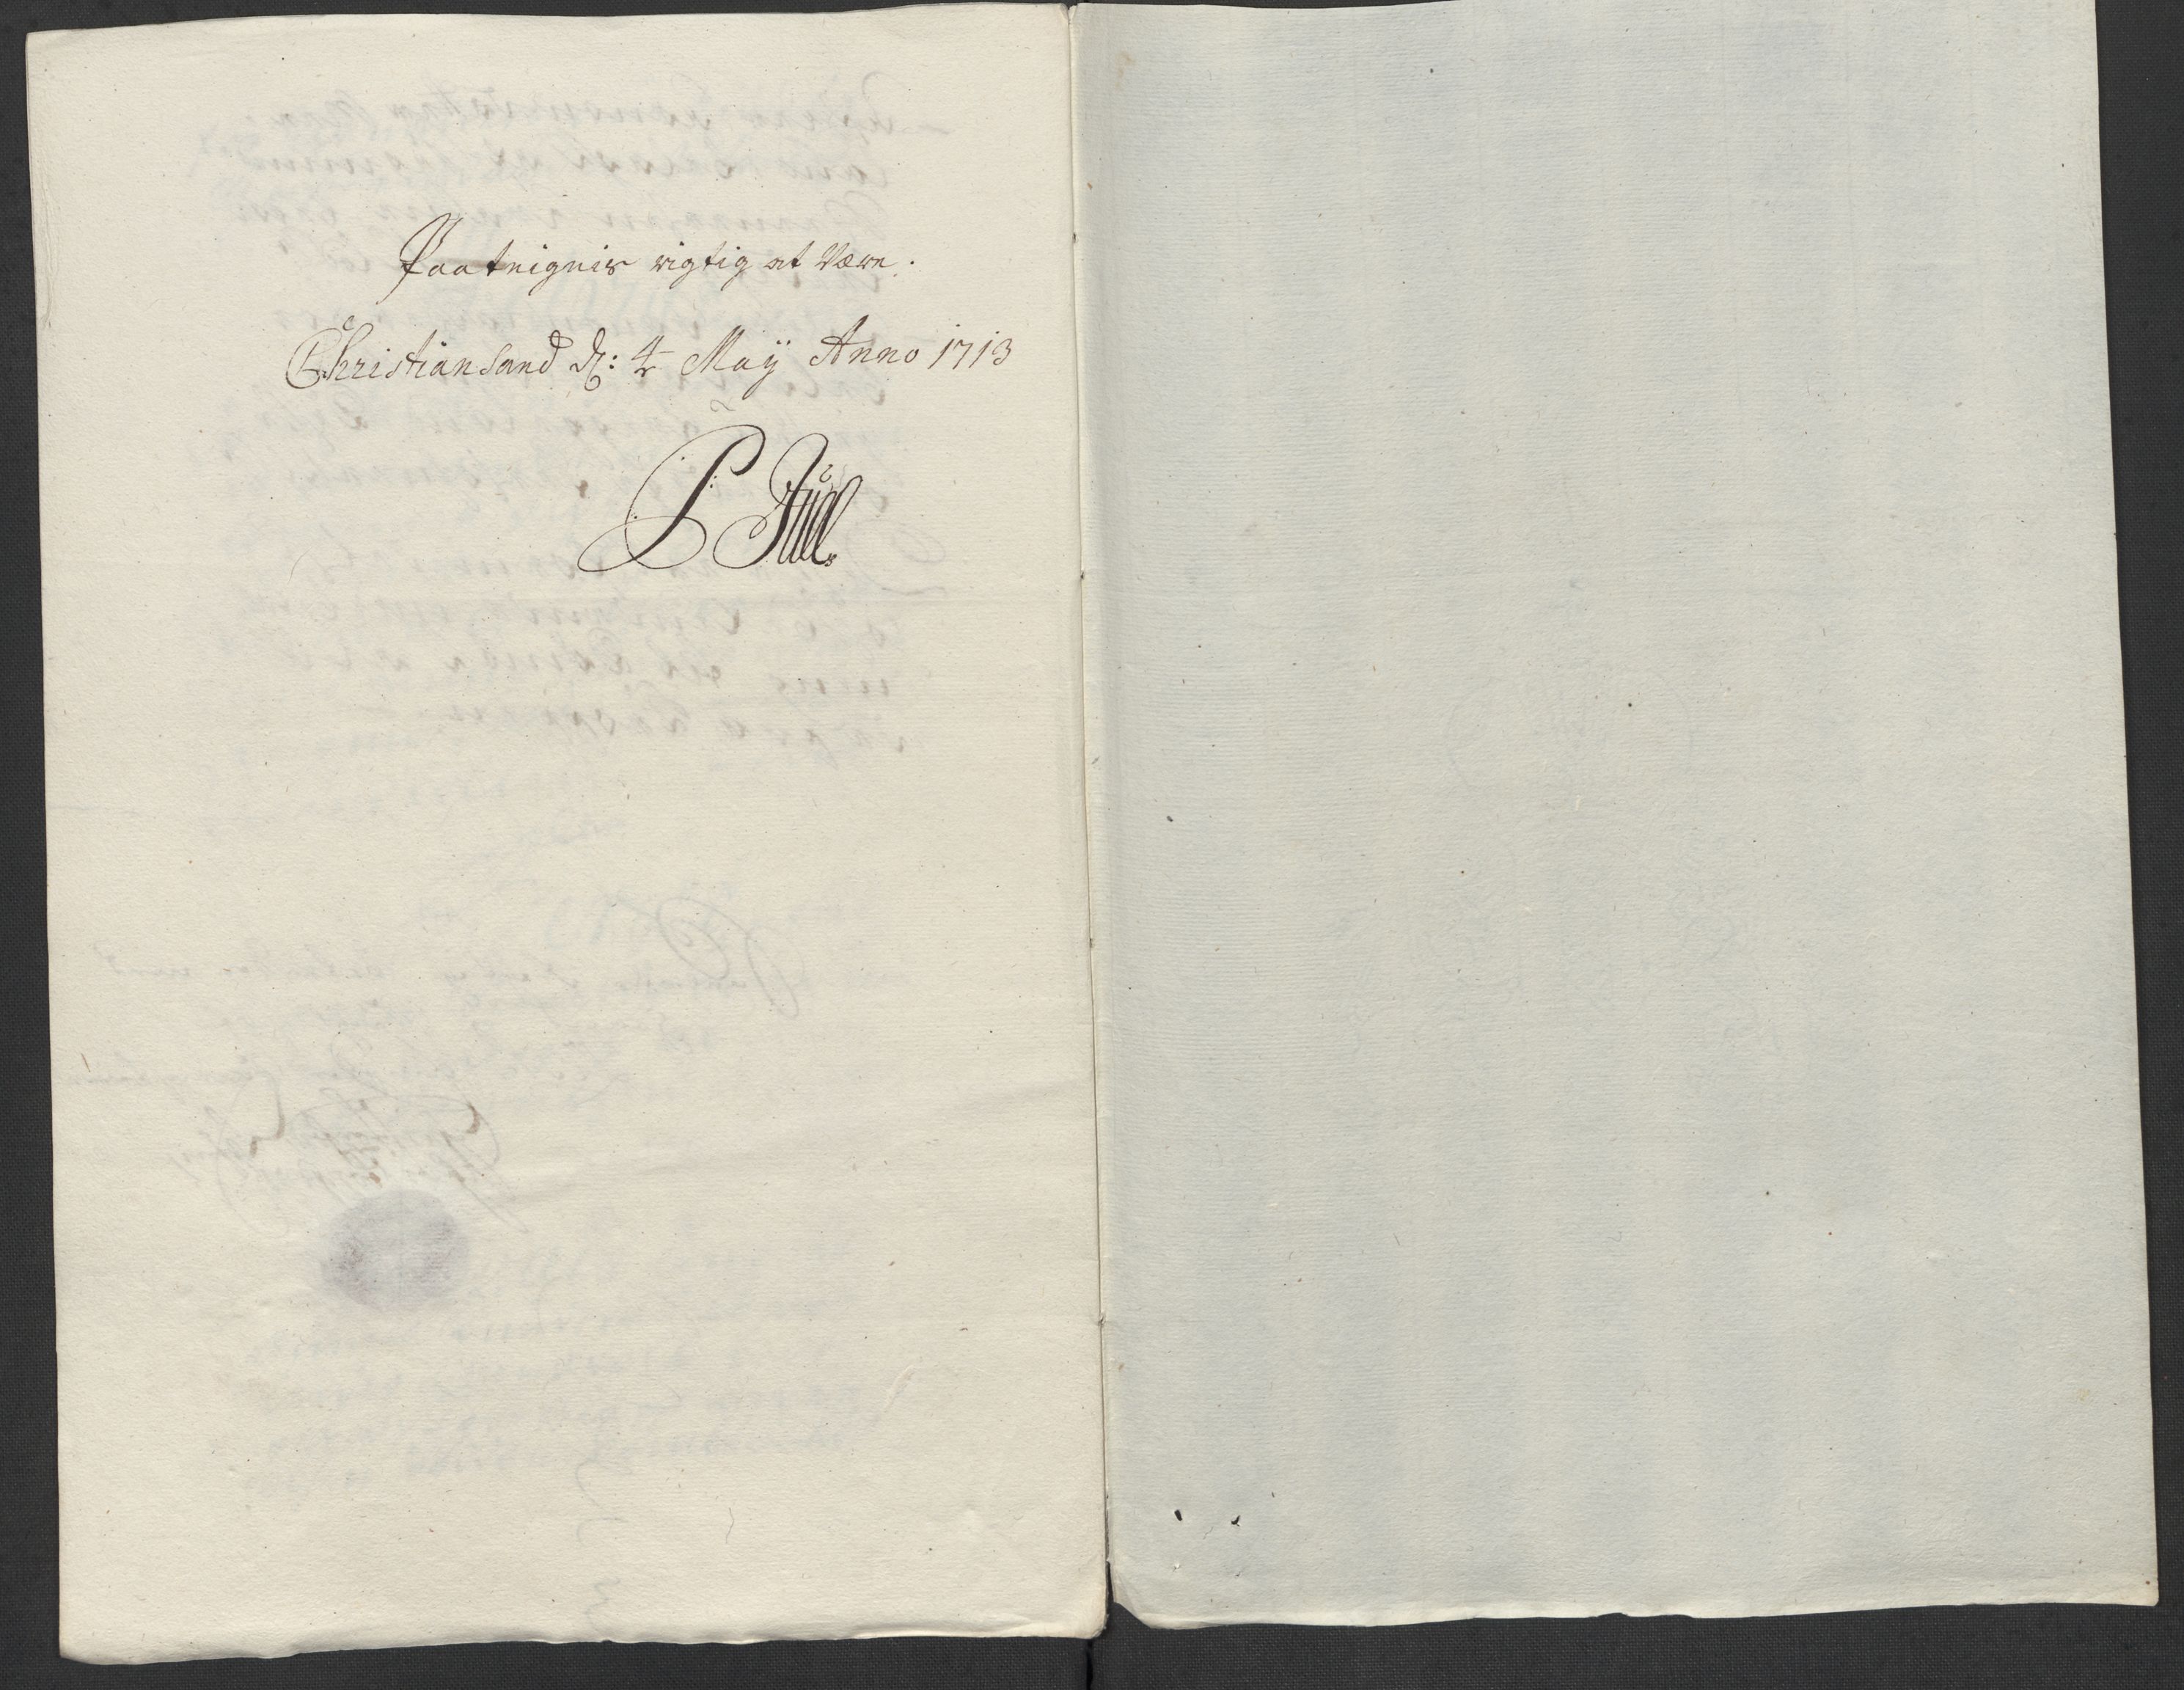 Paateignis rigtig at Være.
Christiansand d: 4 Maÿ Anno 1713
P Juel